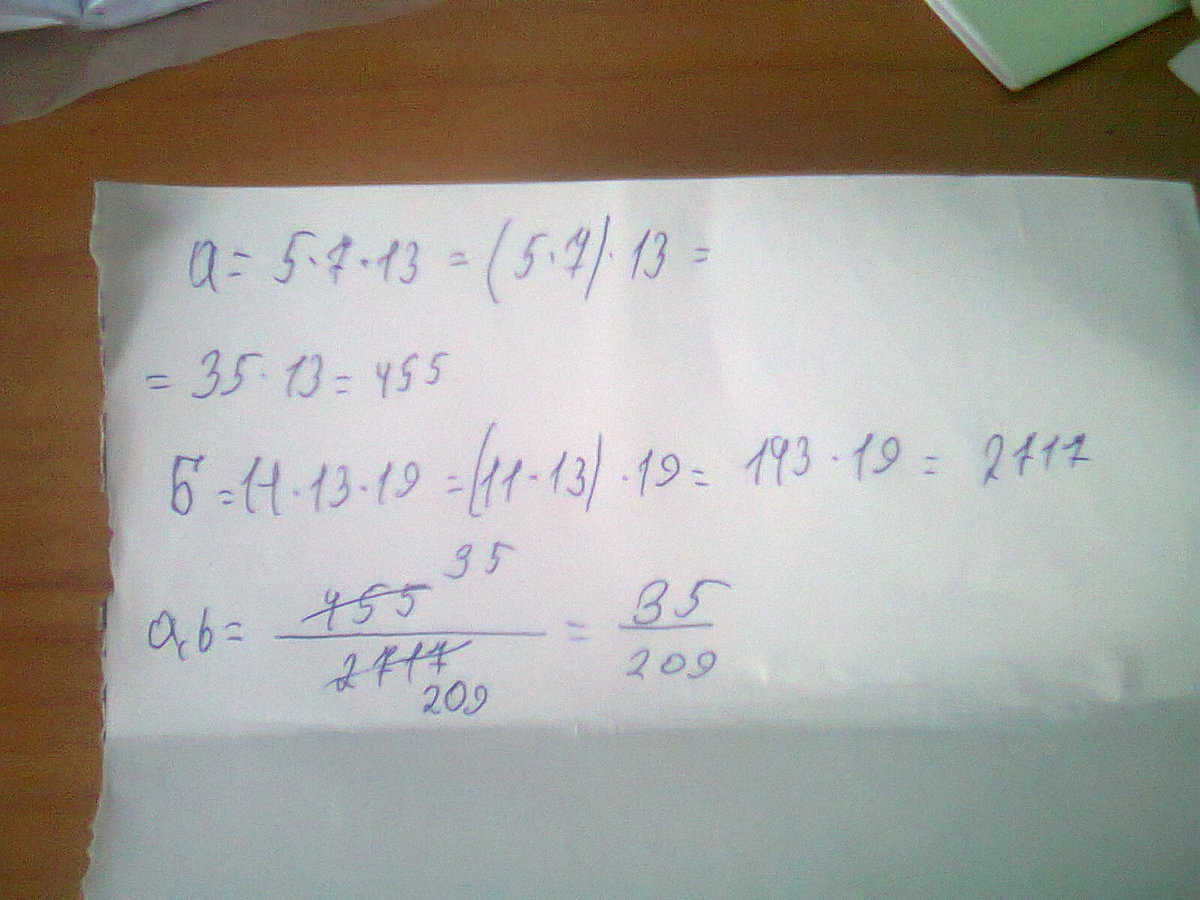 a = 5·7·13 = (5·7)·13 =
= 35·13 = 455
Б = 11·13·19 = (11·13)·19 = 143·19 = 2717
35
a,b = 455/2717 = 35/209
209